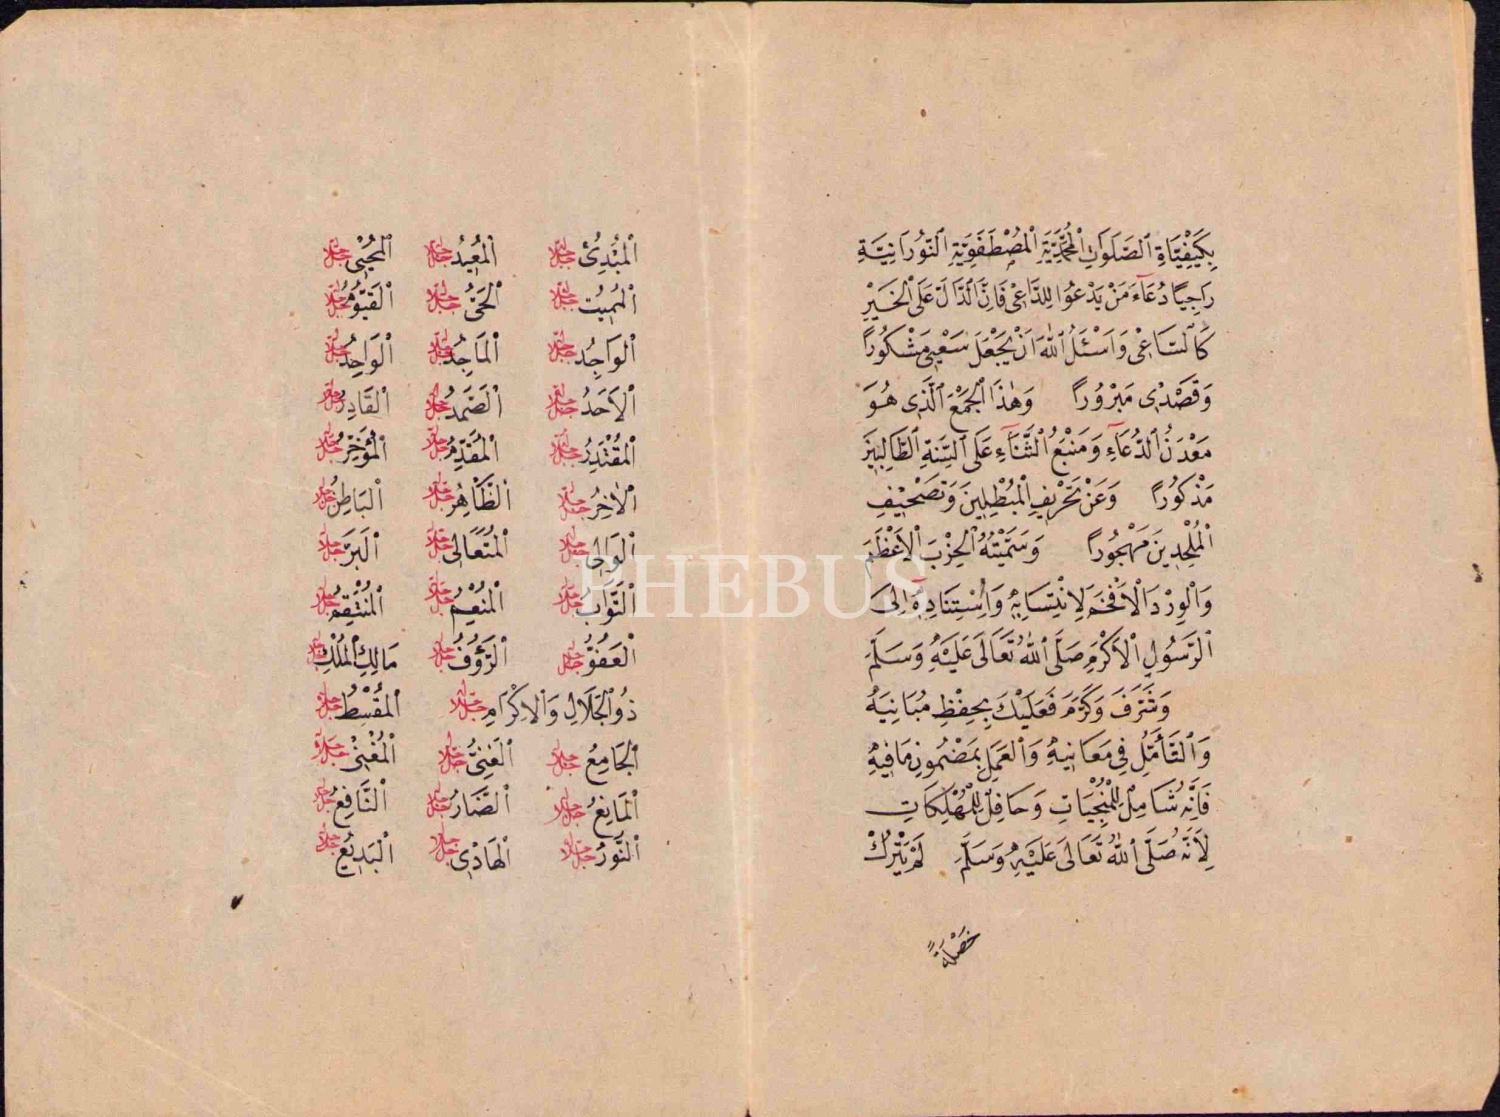 بِكَيْفِيَّاةِ الصَّلَوَاتِ الْمُحَمَّدِيَّةِ الْمُصْطَفَوِيَّةِ النُّورَانِيَّةِ
رَاجِيًا دُعَآءَ مَنْ يَدْعُوا لِلدَّاعِى فَاِنَّ الدَّالَّ عَلَى الْخَيْرِ
كَالسَّاعِى وَاَسْئَلُ اللّٰهَ اَنْ يَجْعَلَ سَعْيِى مَشْكُورًا
وَقَصْدِى مَبْرُورًا وَهٰذَا الْجَمْعَ الَّذِى هُوَ
مَعْدَنُ الدُّعَآءِ وَمَنْبَعُ الثَّنَآءِ عَلَى اَلْسِنَةِ الطَّالِبِينَ
مَذْكُورًا وَعَنْ تَحْرِيفِ الْمُبْطِلِينَ وَتَصْحِيفِ
الْمُلْحِدِينَ مَهْجُورًا وَسَمَّيْتُهُ الْحِزْبَ الْاَعْظَمَ
وَالْوِرْدَ الْاَفْخَمَ لِانْتِسَابِهِ وَاسْتِنَادِهِٓ اِلَى
الرَّسُولِ الْاَكْرَمِ صَلَّى اللّٰهُ تَعَالَى عَلَيْهِ وَسَلَّمَ
وَشَرَّفَ وَكَرَّمَ فَعَلَيْكَ بِحِفْظِ مَبَانِيهِ
وَالتَّأَمُّلِ فِى مَعَانِيهِ وَالْعَمَلِ بِمَضْمُونِ مَا فِيهِ
فَاِنَّهُ شَامِلٌ لِلْمُنْجِيَاتِ وَحَافِلٌ لِلْمُهْلِكَاتِ
لِاَنَّهُ صَلَّى اللّٰهُ تَعَالَى عَلَيْهِ وَسَلَّمَ لَمْ يَتْرُكْ
خَصْلَةً
الْمُبْدِئُ جل جلاله الْمُعِيدُ جل جلاله الْمُحْيِى جل جلاله
الْمُمِيتُ جل جلاله الْحَىُّ جل جلاله الْقَيُّومُ جل جلاله
الْوَاجِدُ جل جلاله الْمَاجِدُ جل جلاله الْوَاحِدُ جل جلاله
الْاَحَدُ جل جلاله الصَّمَدُ جل جلاله الْقَادِرُ جل جلاله
الْمُقْتَدِرُ جل جلاله الْمُقَدِّمُ جل جلاله الْمُؤَخِّرُ جل جلاله
الْاٰخِرُ جل جلاله الظَّاهِرُ جل جلاله الْبَاطِنُ جل جلاله
الْوَالِى جل جلاله الْمُتَعَالِى جل جلاله الْبَرُّ جل جلاله
التَّوَّابُ جل جلاله الْمُنْعِمُ جل جلاله الْمُنْتَقِمُ جل جلاله
الْعَفُوُّ جل جلاله الرَّؤُفُ جل جلاله مَالِكُ الْمُلْكِ جل جلاله
ذُو الْجَلَالِ وَالْاِكْرَامِ جل جلاله الْمُقْسِطُ جل جلاله
الْجَامِعُ جل جلاله الْغَنِىُّ جل جلاله الْمُغْنِى جل جلاله
الْمَانِعُ جل جلاله الضَّارُّ جل جلاله النَّافِعُ جل جلاله
النُّورُ جل جلاله الْهَادِى جل جلاله الْبَدِيعُ جل جلاله
PHEBUS